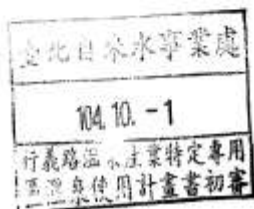 臺北自來水事業處
104.10.-1
行義路溫水產業特定專用
區溫泉使用計畫書初審